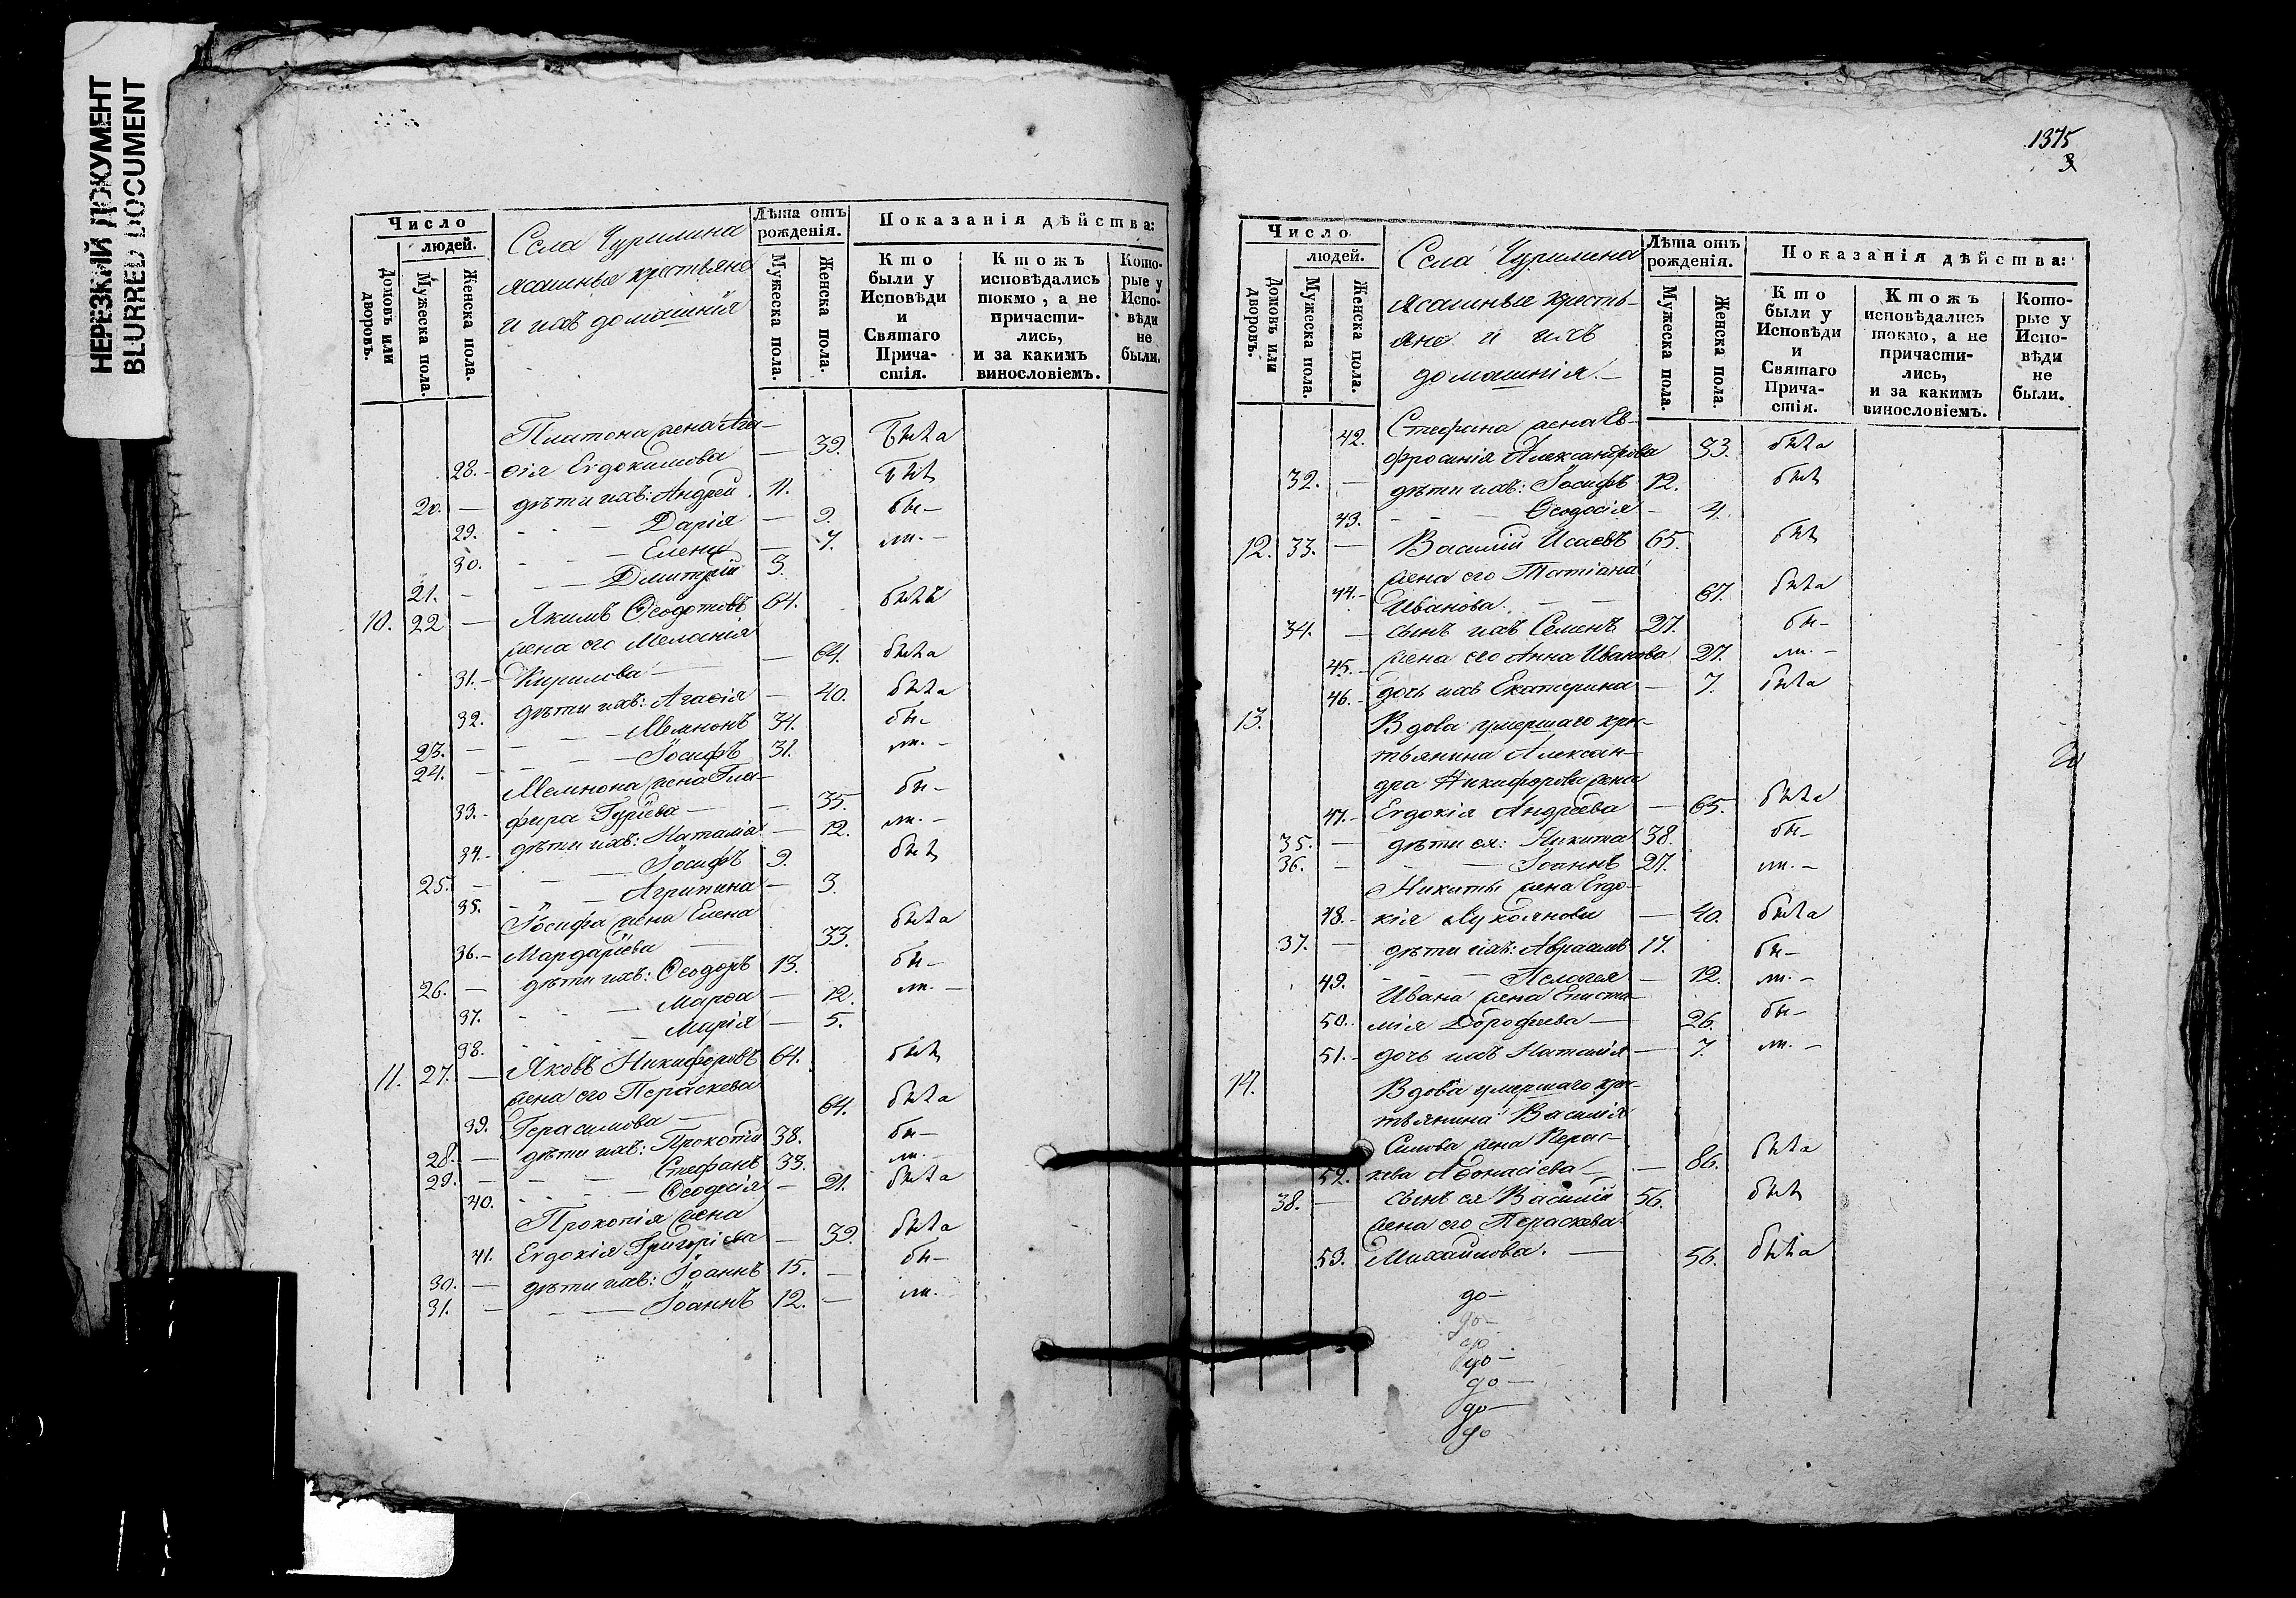 НЕРЕЗКИЙ ДОКУМЕНТ
BLURRED DOCUMENT
Число
людей.
Домовъ или дворовъ.
Мужеска пола.
Женска пола.
Села Чурилина
ясашные крестьяне
и ихъ домашнія
Лѣта отъ рожденія.
Мужеска пола.
Женска пола.
Показанія дѣйства:
Кто были у Исповѣди и Святаго Причастія.
Ктожъ исповѣдались токмо, а не причастились, и за какимъ винословіемъ.
Которые у Исповѣди не были.
Платона жена Ага-
28. - ѳія Евдокимова — 39. была
20. — дѣти ихъ: Андрей 11. былъ
29. - - Дарія — 9. бы-
30. - - Елена — 7. ли. -
21. - — Дмитрій 3.
10. 22 — Якимъ Ѳеодотовъ 64. былъ
жена его Меланія
31. - Кирилова — 64. была
32. дѣти ихъ: Агаѳія — 40. была
23. — - - Мемнонъ 34. бы-
24. — - - Іосифъ 31. ли. -
Мемнона жена Гла-
33. - фира Гуріева — 35. бы-
34. - дѣти ихъ: Наталія — 12. ли. -
25. - - — Іосифъ 9. былъ
35. - - Агрипина — 3.
Іосифа жена Елена
36. - Мардаріева — 33. была
26. — дѣти ихъ: Ѳеодоръ 13. бы-
37. - - — Марѳа — 12. ли. -
38. - - — Марія — 5.
11. 27. — Яковъ Никифоровъ 64. былъ
жена его Параскева
39. Герасимова — 64. была
28. — дѣти ихъ: Прокопій 38. бы-
29. - - — Стефанъ 33. ли. -
40. - - — Ѳеодосія — 21. была
Прокопія жена
41. Евдокія Григоріева — 39. была
30. — дѣти ихъ: Іоаннъ 15. — бы-
31. — - — Іоаннъ 12. — ли.
1375
3
Число
людей.
Домовъ или дворовъ.
Мужеска пола.
Женска пола.
Села Чурилина
ясашные кресть-
яне и ихъ
домашнія. -
Лѣта отъ рожденія.
Мужеска пола.
Женска пола.
Показанія дѣйства:
Кто были у Исповѣди и Святаго Причастія.
Ктожъ исповѣдались токмо, а не причастились, и за какимъ винословіемъ.
Которые у Исповѣди не были.
Стефана жена Ев-
42. фросинія Александрова 33. была
32. — дѣти ихъ: Іосифъ 12. былъ
43. - - Ѳеодосія — 4.
12. 33. — Василій Исаевъ 65. былъ
жена его Татіана
44. - Иванова. — 67. была
34. — сынъ ихъ Семенъ 27. бы-
45. - жена его Анна Иванова 27. ли. -
46. - дочь ихъ Екатерина — 7. была
13. Вдова умершаго крес-
тьянина Алексан-
дра Никифорова жена
47. - Евдокія Андреева — 65. была
35. — дѣти ея: Никита 38. бы-
36. — - — Іоаннъ 27. ли. -
Никиты жена Евдо-
48. - кія Лукоянова — 40. была
37. — дѣти ихъ: Авраамъ 17. бы-
49. - - — Пелагея — 12. ли. -
Ивана жена Еписти-
50. - мія Дорофеева — 26. бы-
51. - дочь ихъ Наталія — 7. ли. -
14. Вдова умершаго крес-
тьянина Василія
Силова жена Парас-
52. кева Аѳонасіева — 86. была
38. — сынъ ея Василій 56. былъ
жена его Параскева
53. Михайлова. — 56. была
до-
до-
до
до-
до-
до-
до